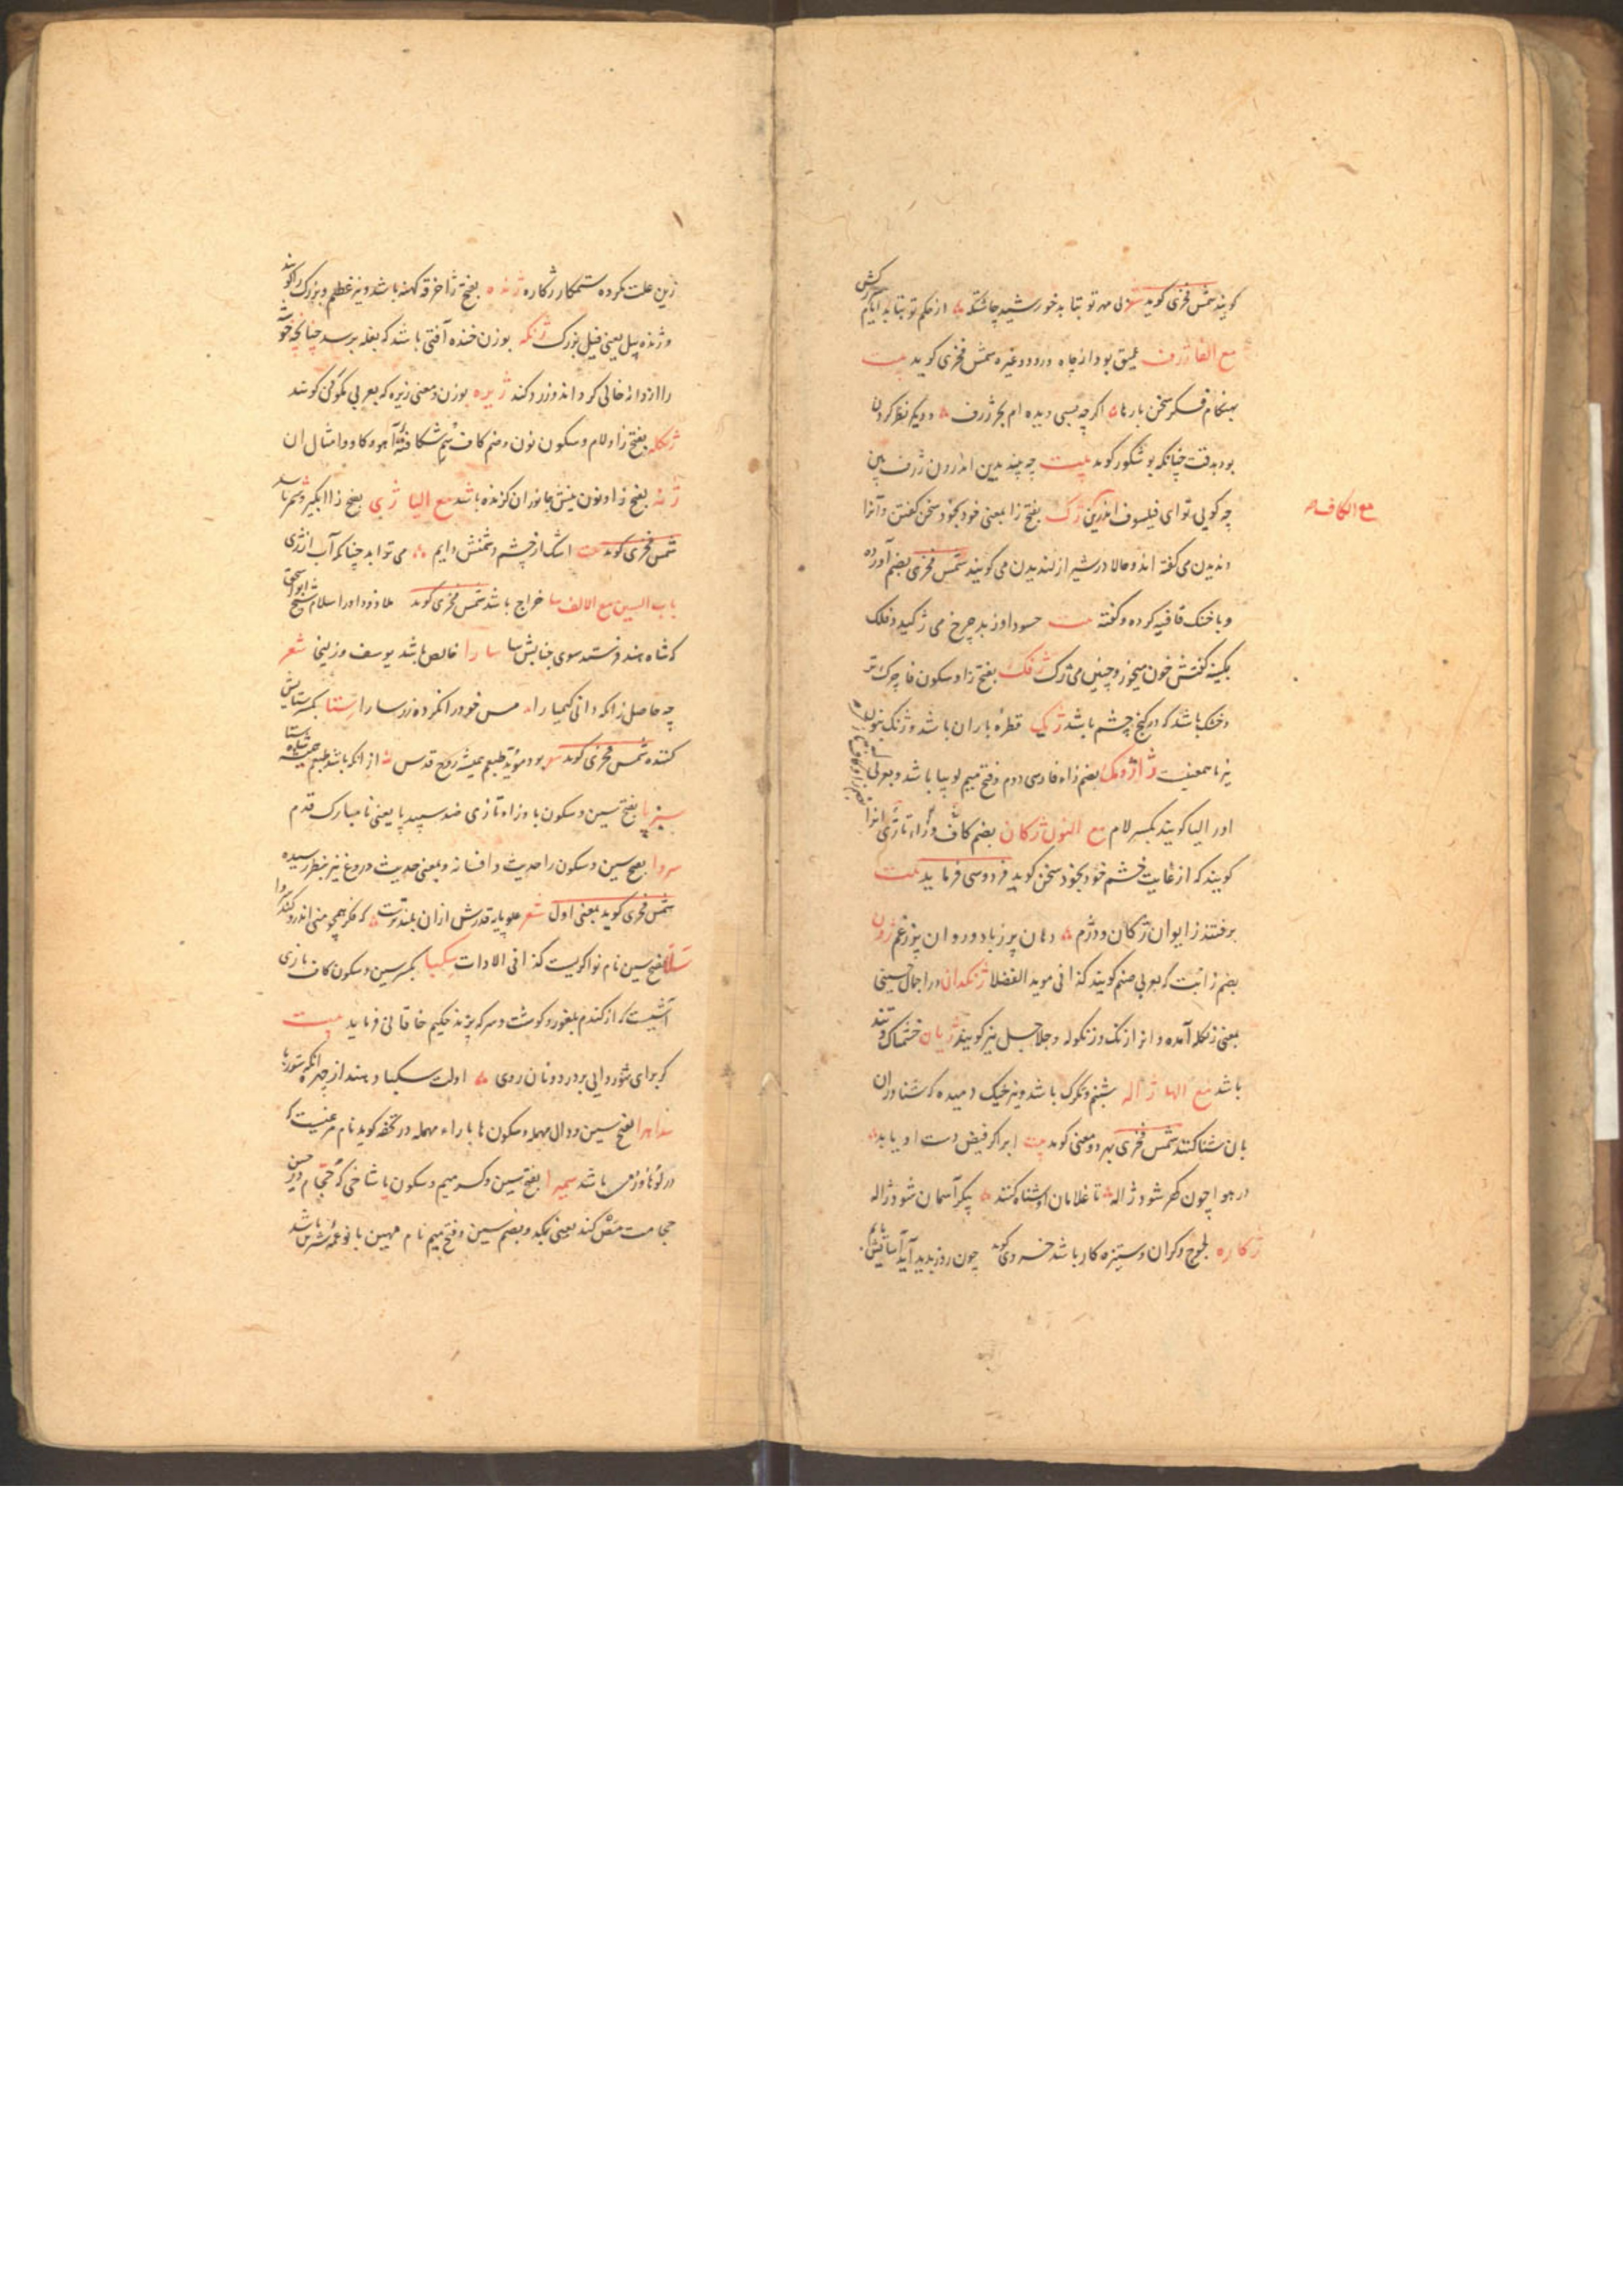 کویند شمس فخری کوید شعر بی مهر تو نتابد خورشید چاشتکه از حکم تو نتابد ایام سرکش
مع الفا ژرف عمیق بود از چاه و رود و غیره شمس فخری کوید بیت
بهنکام فکر سخن بارها اکر چه بسی دیده ام بحر ژرف و دیکر نظر کردن
بود بدقت چنانکه بوشکور کوید بیت چه بیدین اندرون ژرف بین
مع الکاف
چه کویی تو ای فیلسوف اندرین ژک بفتح زا بمعنی خود بخود سخن کفتن و آنرا
دندیدن می کفته اند و حالا در شیراز لندیدن می کویند شمس فخری بضم آورده
و با خنک قافیه کرده و کفته بیت حسود او ز بد چرخ می ژکید و فلک
بکینه کفتش خون میخور و چنین می ژک ژفک بفتح زا و سکون فا چرک تر
و خشک باشد که در کنج چشم باشد ژیک قطره باران باشد و ژنک بنون
نیز باین معنیست ژاژومک بضم زاء فارسی دوم و فتح میم لوبیا باشد و بعربی
اورا لبیا کویند بکسر لام مع النون ژکان بضم کاف و زاء تازی آنرا
کویند که از غایت خشم خود بخود سخن کوید فردوسی فرماید بیت
برفتند ز ایوان ژکان و دژم دهان پر ز باد و روان پر ز غم ژون
بضم زا بت که بعربی صنم کویند کذا فی موید الفضلا ژنکدان در اجمال حسینی
بمعنی زنکله آمده و انرا زنک و زنکوله و جلاجل نیز کویند ژیان خشمناک و تند
باشد مع الها ژاله شبنم و تکرک باشد و نیز خیک دمیده که شناوران
بان شنا کنند شمس فخری بهر دو معنی کوید بیت ابر اکر فیض دست او یابد
در هوا چون کهر شود ژاله تا غلامان او شناه کنند پیکر آسمان شود ژاله
ژکاره لجوج و کران و ستیزه کار باشد خسروی کوید چون روز بدید آید آسایش یابم
زین علت مکرده ستمکار ژکاره ژنده بفتح ژا خرقه کهنه باشد و نیز عظیم و بزرک را کویند
و ژنده پیل یعنی فیل بزرک ژنکه بوزن خنده آفتی باشد که بغله برسد چنانچه خوشه
را از دانه خالی کرداند و زرد کند ژیره بوزن و معنی زیره که بعربی کمون کویند
ژنکله بفتح زا و لام و سکون نون و ضم کاف سم شکافته آهو و کاو و امثال ان
ژنه بفتح زا و نون نیش جانوران کزنده باشد مع الیا ژی بفتح زا ابکیر و شمر باشد
شمس فخری کوید بیت اشک از چشم دشمنش دایم می توابد چنانکه آب از ژی
باب السین مع الالف سا خراج باشد شمس فخری کوید ملاذ داور اسلام شیخ ابو اسحق
که شاه هند فرستد سوی جنابش سا سارا خالص باشد یوسف و زلیخا شعر
چه حاصل زانکه دانی کیمیا را مس خود را نکرده زر سارا ستا بکسر ستایش
کننده شمس فخری کوید بود مؤید طبعم همیشه روح قدس از انکه باشد طبعم همیشه شاه ستا
سبزپا بفتح سین و سکون با و زاء تازی ضد سپید پا یعنی نا مبارک قدم
سروا بفتح سین و سکون را حدیث و افسانه و بمعنی حدیث دروغ نیز بنظر رسیده
شمس فخری کوید بمعنی اول شعر علو پایه قدرش از ان بلندترست که فکر همچو منی اندرو کند سروا
بفتح سین نام نواکویست کذا فی الادات سکبا بکسر سین و سکون کاف تازی
آشیست که از کندم بلغور و کوشت و سرکه پزند حکیم خاقانی فرماید بیت
کز برای شوروایی بر در دونان روی اولت سکبا دهند از چهره انکه شوربا
سداهرا بفتح سین و دال مهمله و سکون ها با راء مهمله در تحفه کوید نام مرغیست که
باشد سمیرا بفتح سین و کسر میم و سکون یا شاخی که حجام در حین
حجامت مص کند یعنی مکد و بضم سین و فتح میم نام مهین بانو عمه شیرین باشد